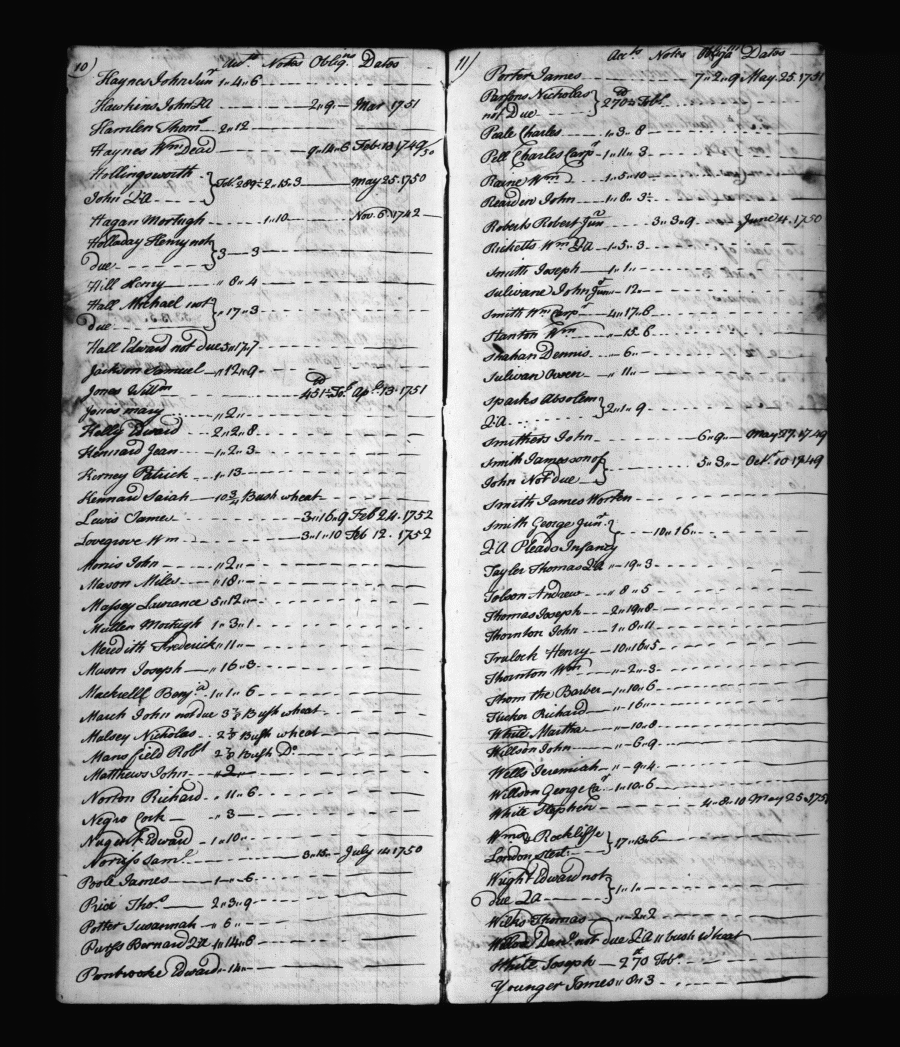 10) Accts Notes Obligns Dates
Haynes John Junr 1„4„6
Hawkins John QA 2„9— Mar 1751
Hamlen Thoms 2„12
Haynes Wm Dead 9„14„6 Feb 13 1749/50
Hollingsworth
John QA Tobo 289 2„15„3 May 25 1750
Hagan Mortugh 1„10 Novr 6 1742
Holladay Henry not
due 3—3
Hill Henry „8„4
Hall Michael not
due „17„3
Hall Edward not due 3„17„7
Jackson Samuel „12„9
Jones Willm 451 Tobo Apl 13 1751
Jones Mary „2„
Kelly Edward 2„2„8
Kennard Jean 1„2„3
Kerney Patrick 1„13
Kennard Saiah 10 3/4 Bush wheat
Lewis James 3„16„9 Feb 24 1752
Lovegrove Wm 3„1„10 Feb 12 1752
Morris John „2„
Mason Miles „18„
Massey Lawrance 5„12„
Mullen Mortugh 1„3„1
Meredith Frederick „11„
Mason Joseph „16„3
Mackrell Benja 1„1„6
March John not due 3 Bush wheat
Malsey Nicholas 2 Bush wheat
Mansfield Robt 2 Bush Do
Matthews John „2„
Norton Richard „11„6
Negro Cork „3
Nugent Edward 1„10„
Norriss Saml 3„15„ July 14 1750
Poole James 1„—6
Price Thos 2„3„9
Potter Susannah „6
Purss Bernard QA 1„14„6
Pembrooke Edward „14„
11) Accts Notes Obligns Dates
Porter James 7„2„9 May 25 1751
Parsons Nicholas
not Due 270 Tobo
Peale Charles 1„3„8
Pell Charles Carpr 1„11„3
Raine Wm 1„5„10
Rearden John 1„8„3
Roberts Robert Junr 3„3„9 June 4 1750
Ricketts Wm QA 1„5„3
Smith Joseph 1„1„
Sulivane John Junr „12„
Smith Wm Carpr 4„17„6
Stanton Wm „15„6
Shahan Dennis „6„
Sulivan Owen „11„
Sparks Absolem
QA 2„1„9
Smithers John 6„9„— May 27 1749
Smith James son of
John Not due 5„3„— Octr 10 1749
Smith James Worton
Smith George Junr
QA Pleads Infancy 10„16„
Tayler Thomas QA „19„3
Tolson Andrew „8„5
Thomas Joseph 2„19„8
Thornton John 1„8„11
Truloch Henry 10„16„5
Thornton Wm „2„3
Thom the Barber 1„10„6
Tucker Richard „16„
White Martha „10„8
Willson John „6„9
Wells Jeremiah „9„4
Willson George Cr 1„10„6
White Stephen 4„8„10 May 25 175
Wm & Rockliffe
London 17„13„6
Wright Edward not
due QA 1„1„
Wilks Thomas „2„2
Danl not due QA 11 bush wheat
White Joseph 270 Tobo
Younger James „8„3